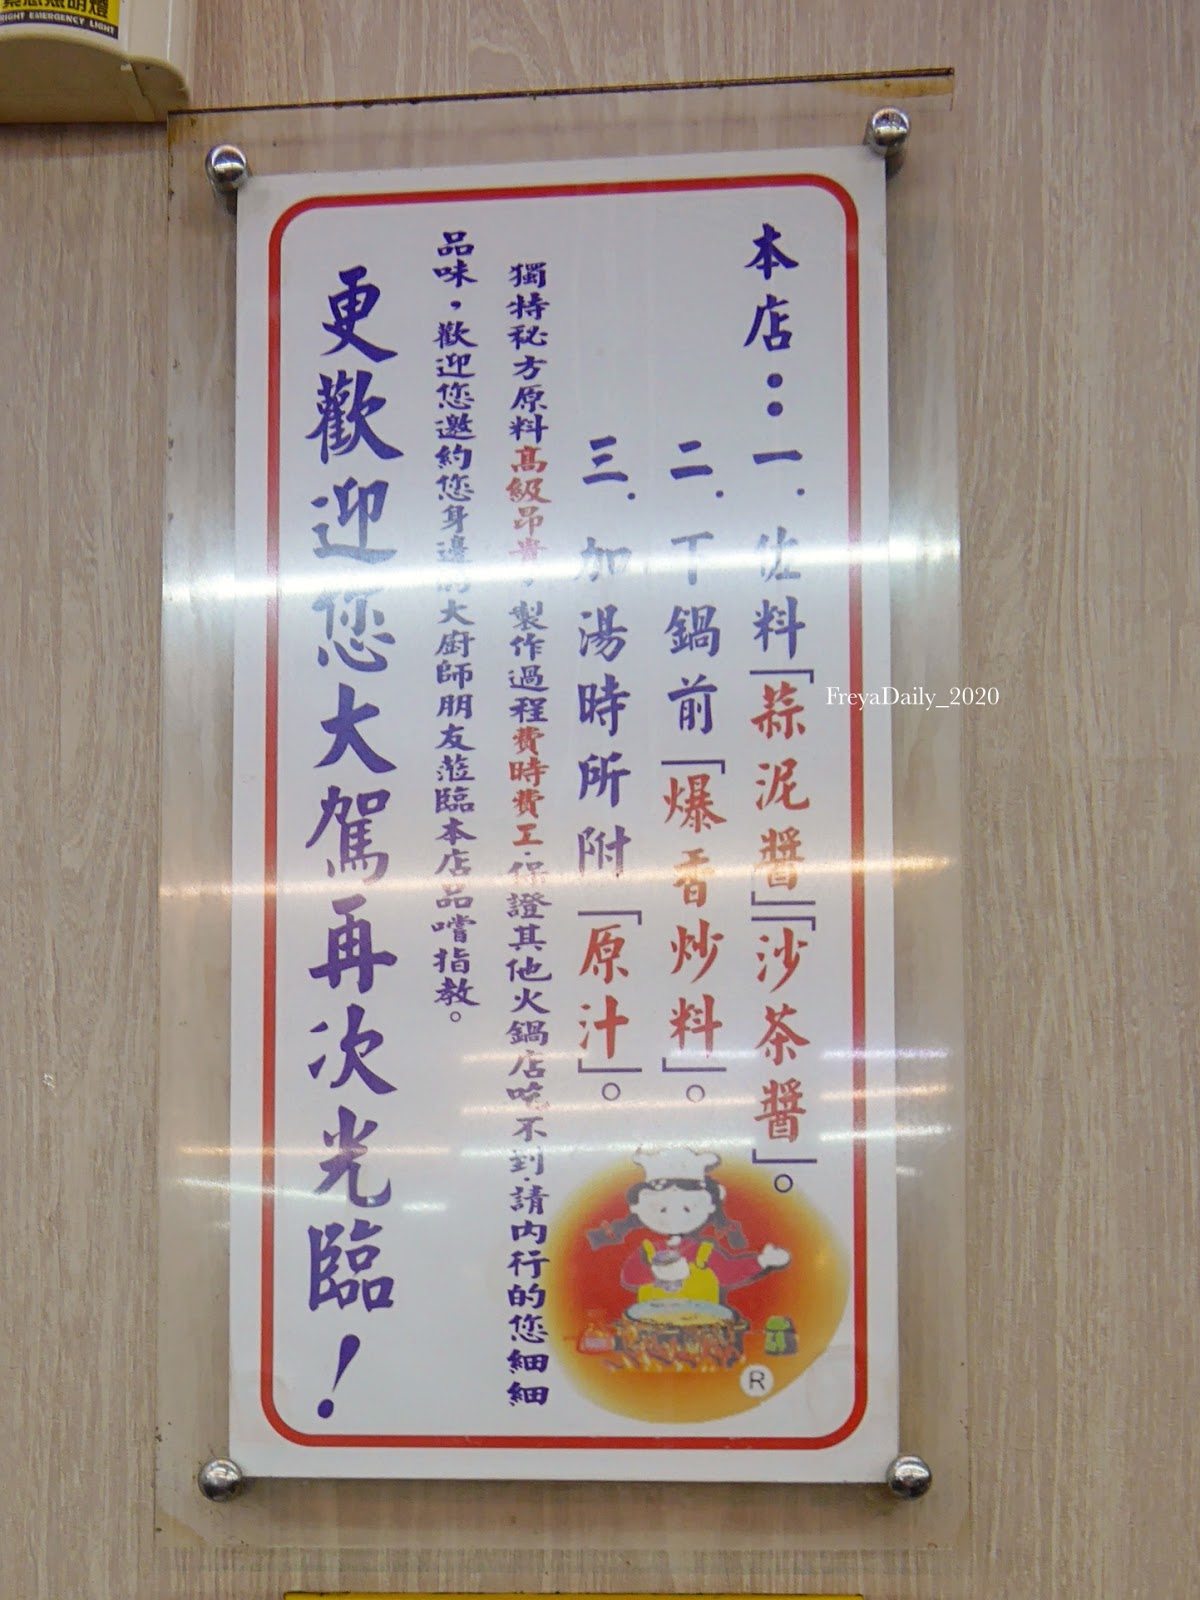 緊急照明燈
BRIGHT EMERGENCY LIGHT
本店：一．佐料「蒜泥醬」「沙茶醬」。
二．下鍋前「爆香炒料」。
三．加湯時所附「原汁」。
獨特秘方原料高級昂貴，製作過程費時費工．保證其他火鍋店吃不到．請內行的您細細
品味，歡迎您邀約您身邊的大廚師朋友蒞臨本店品嚐指教。
更歡迎您大駕再次光臨！
FreyaDaily_2020
R